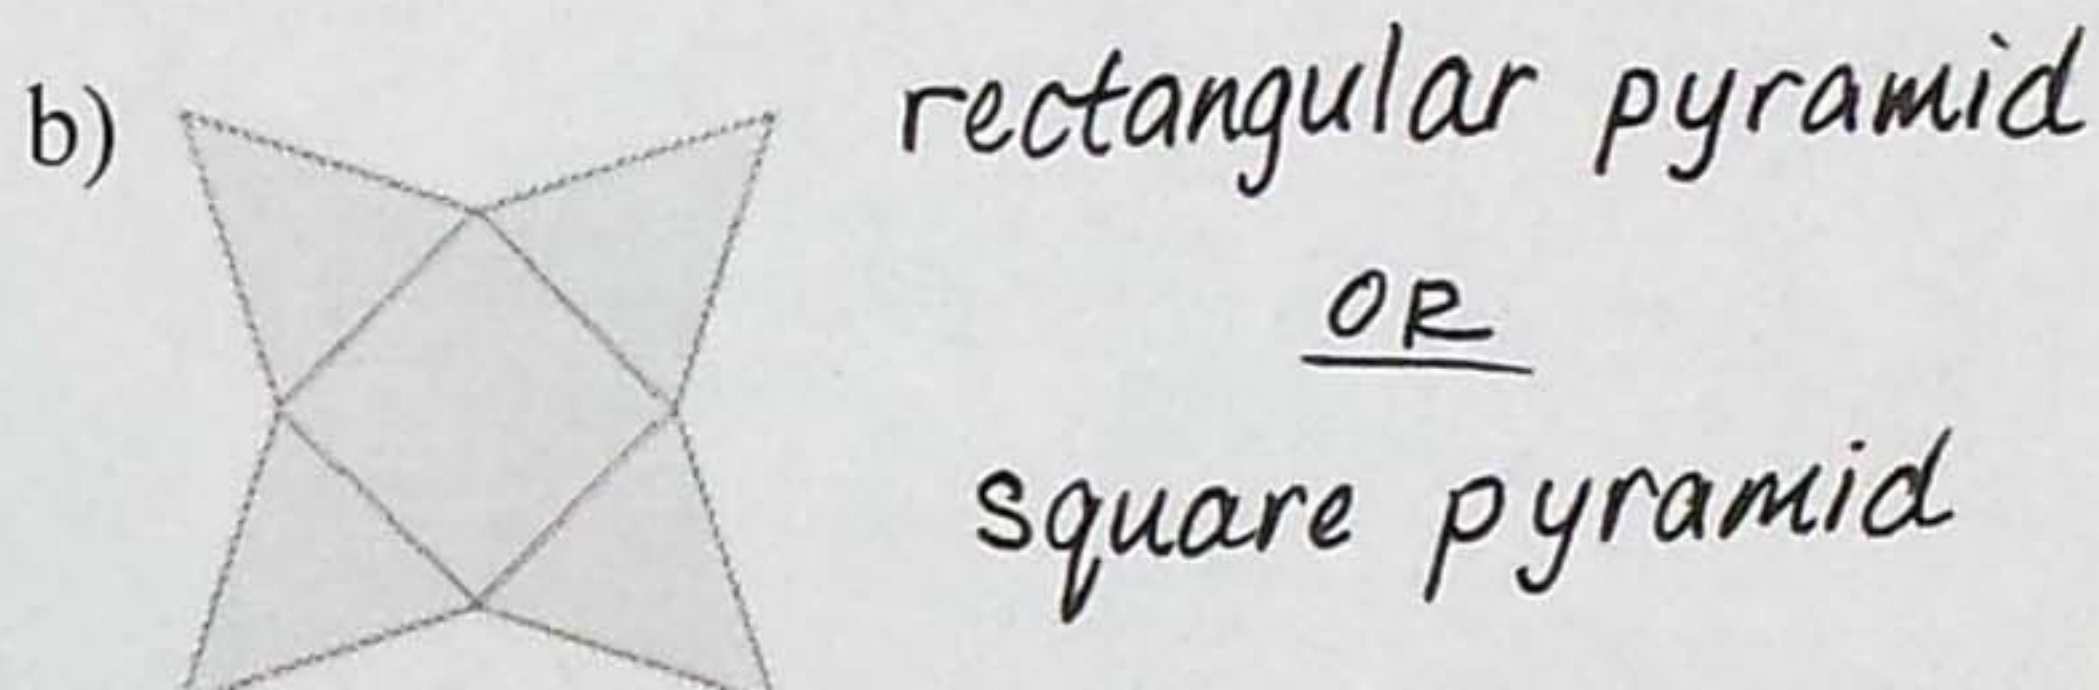 b) rectangular pyramid
OR
square pyramid